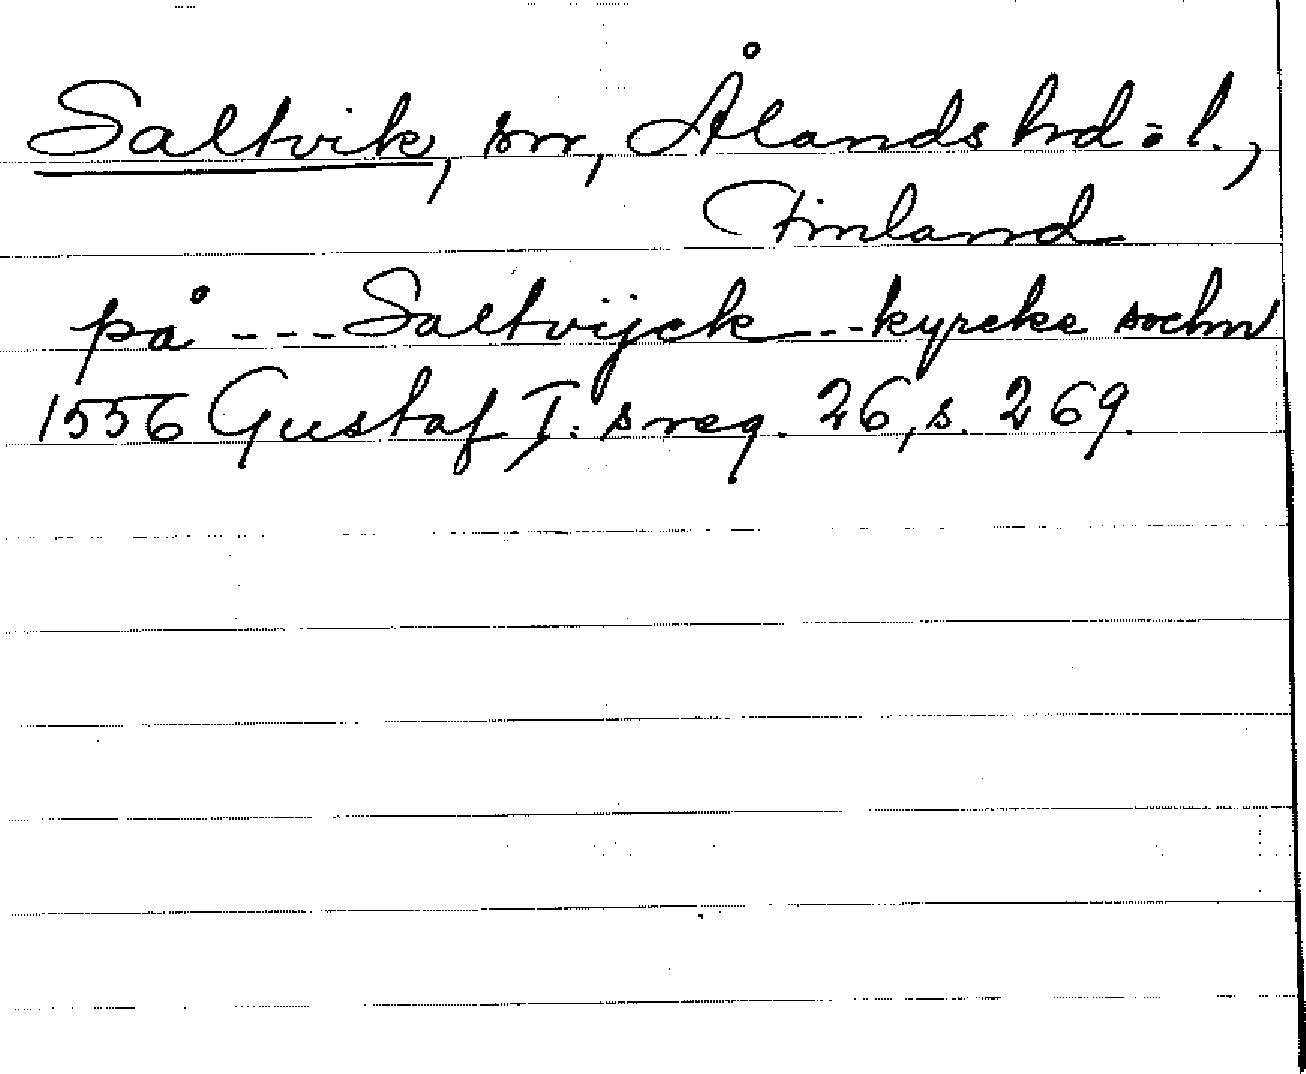 Saltvik, sn, Ålands hd o l.,
Finland
på --- Saltvijck --- kyrcke sochn
1556 Gustaf I:s reg. 26, s. 269.